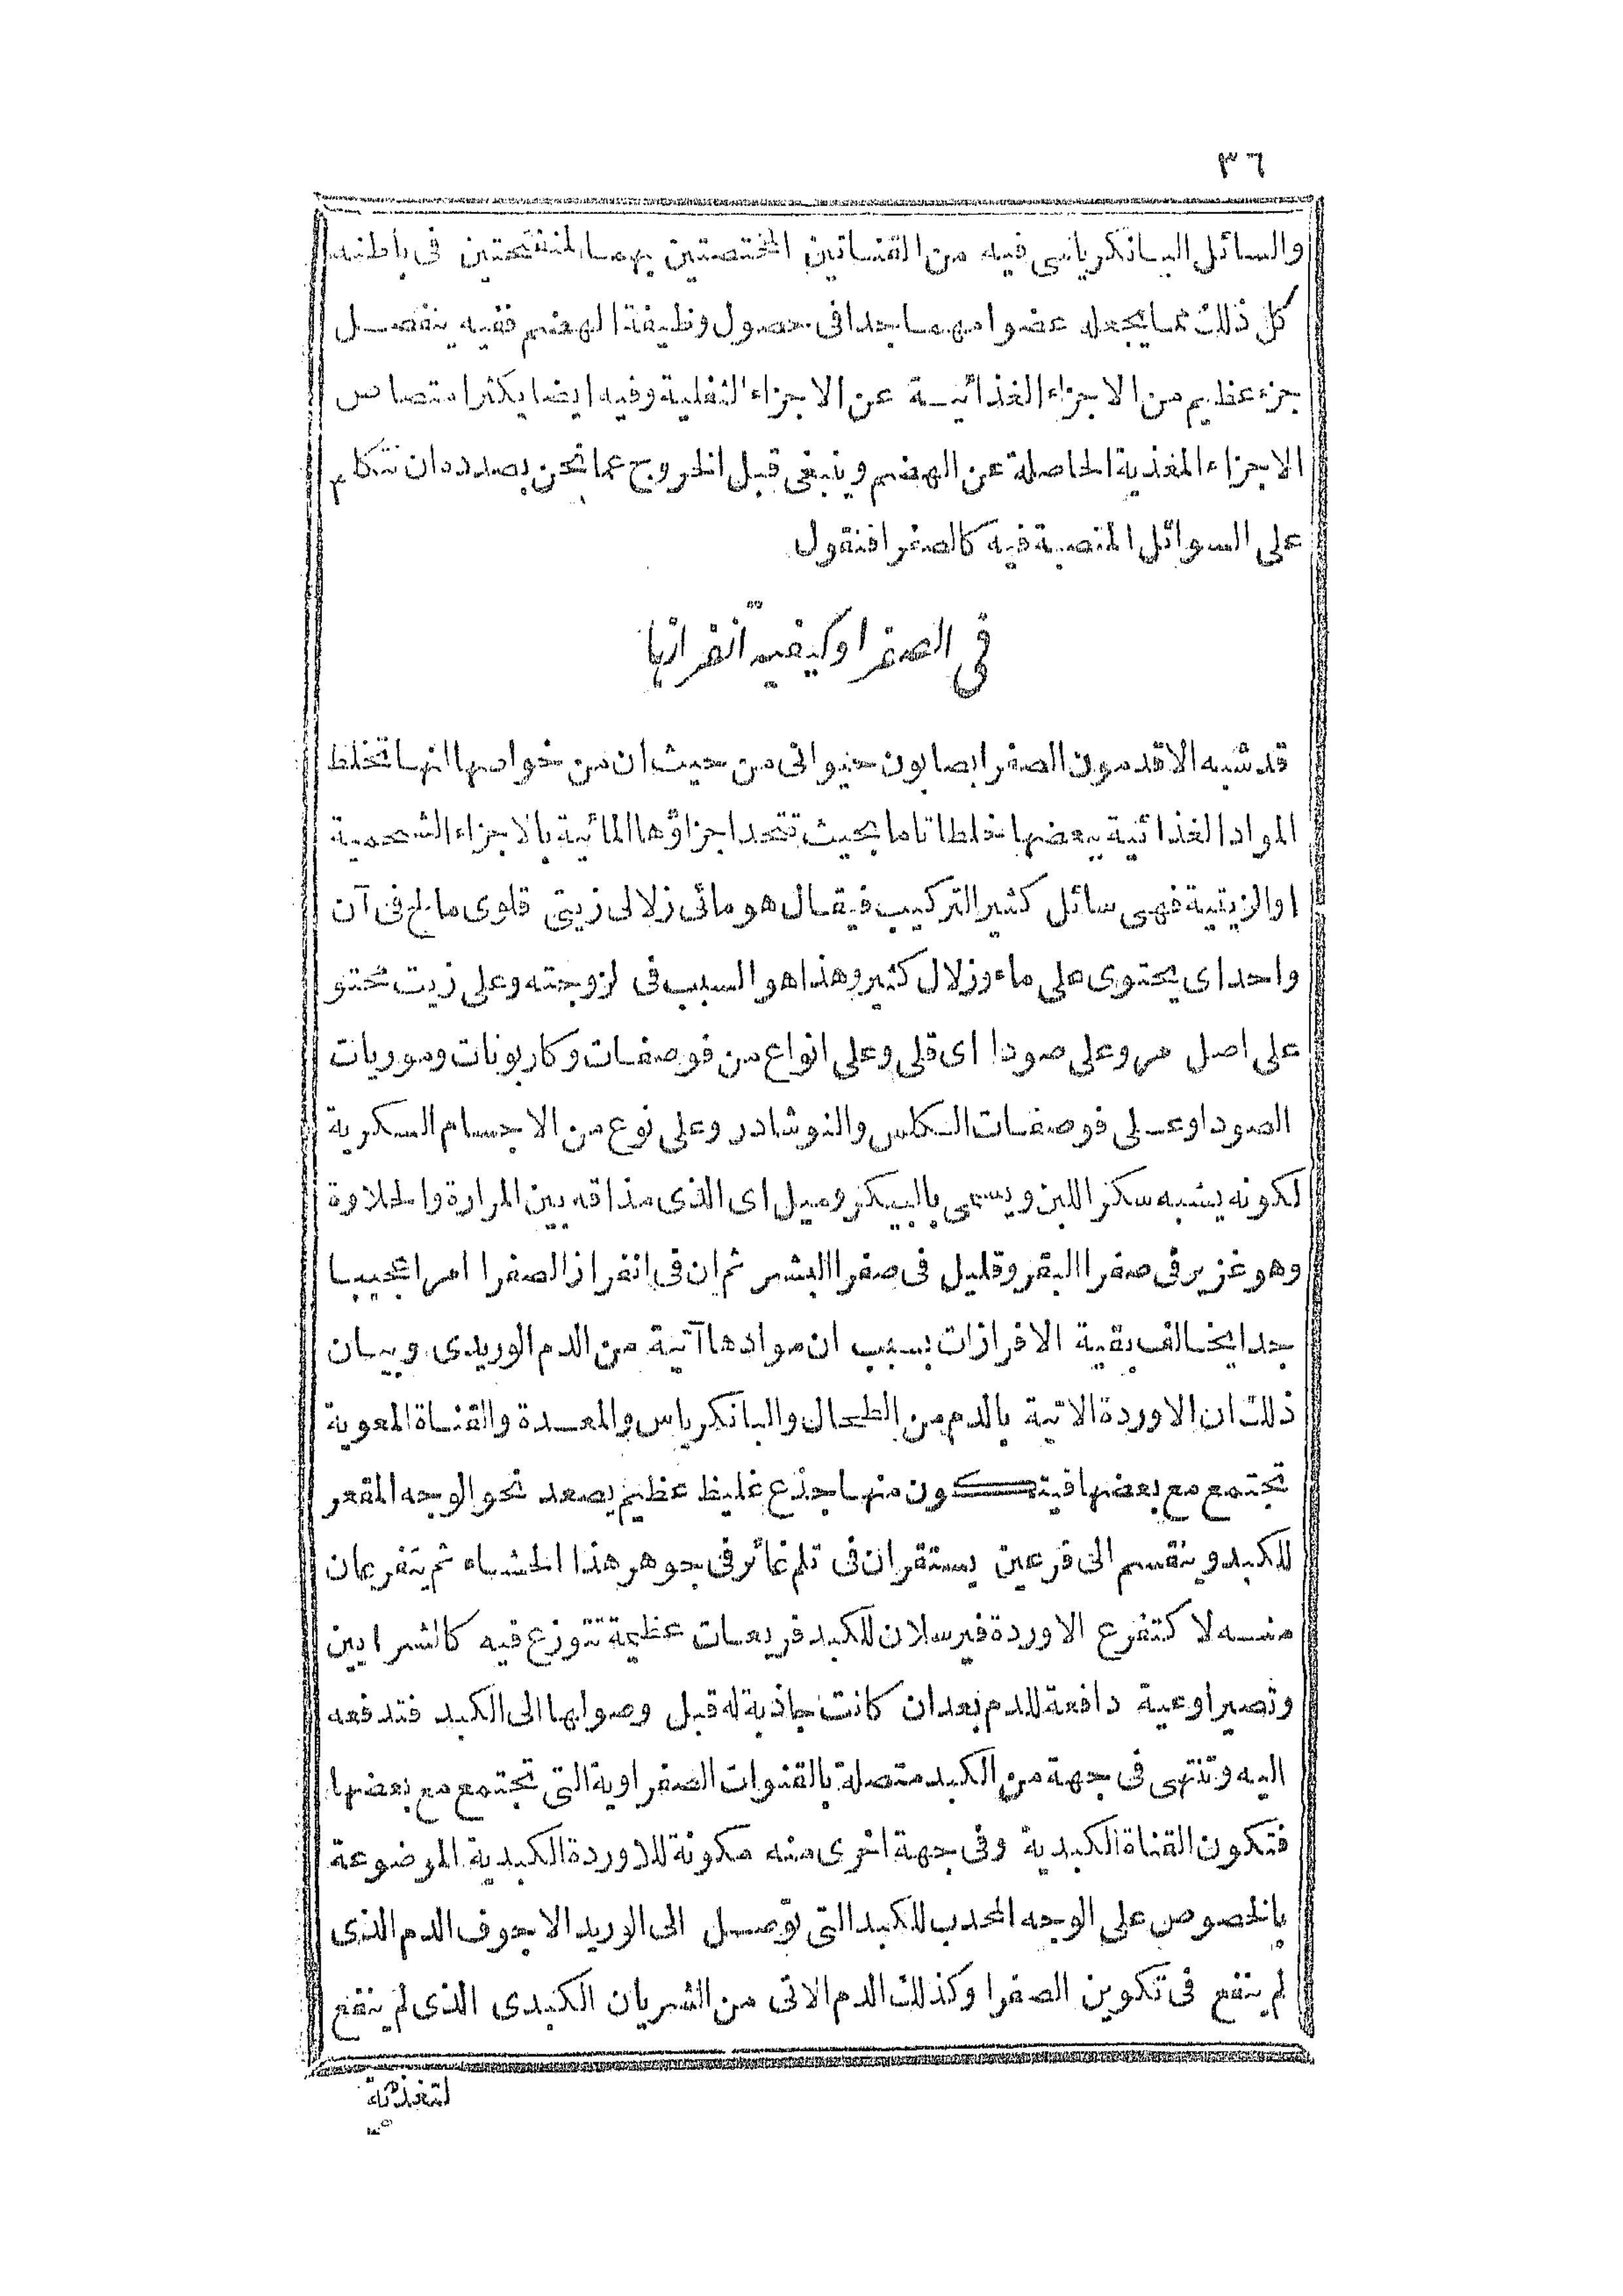 ٣٦
والسائل البانكرياسى فيه من القناتين المختصتين بهما المنفتحتين فى باطنه
كل ذلك مما يجعله عضوا مهما جدا فى حصول وظيفة الهضم ففيه ينفصل
جزء عظيم من الاجزاء الغذائية عن الاجزاء الثفلية وفيه ايضا يكثر امتصاص
الاجزاء المغذية الحاصلة عن الهضم وينبغى قبل الخروج عما نحن بصدده ان نتكلم
على السوائل المنصبة فيه كالصفرا فنقول
فى الصفرا وكيفية انفرازها
قد شبه الاقدمون الصفرا بصابون حيوانى من حيث ان من خواصها انها تخلط
المواد الغذائية ببعضها خلطا تاما بحيث تتحد اجزاؤها المائية بالاجزاء الشحمية
اوالزيتية فهى سائل كثير التركيب فيقال هو مائى زلالى زيتى قلوى مالح فى آن
واحد اى يحتوى على ماء وزلال كثير وهذا هو السبب فى لزوجته وعلى زيت محتو
على اصل مر وعلى صودا اى قلى وعلى انواع من فوصفات وكاربونات وموريات
الصودا وعلى فوصفات الكلس والنوشادر وعلى نوع من الاجسام السكرية
لكونه يشبه سكر اللبن ويسمى بالبيكروميل اى الذى مذاقه بين المرارة والحلاوة
وهو غزير فى صفرا البقر وقليل فى صفرا البشر ثم ان فى انفراز الصفرا امرا عجيبا
جدا يخالف بقية الافرازات بسبب ان موادها آتية من الدم الوريدى وبيان
ذلك ان الاوردة الاتية بالدم من الطحال والبانكرياس والمعدة والقناة المعوية
تجتمع مع بعضها فيتكون منها جذع غليظ عظيم يصعد نحو الوجه المقعر
للكبد وينقسم الى فرعين يستقران فى تلم غائر فى جوهر هذا الحشاء ثم يتفرعان
منه لا كتفرع الاوردة فيرسلان للكبد فريعات عظيمة تتوزع فيه كالشرايين
وتصير اوعية دافعة للدم بعد ان كانت جاذبة له قبل وصولها الى الكبد فتدفعه
اليه وتنتهى فى جهة من الكبد متصلة بالقنوات الصفراوية التى تجتمع مع بعضها
فتكون القناة الكبدية وفى جهة اخرى منه مكونة للاوردة الكبدية الموضوعة
بالخصوص على الوجه المحدب للكبد التى توصل الى الوريد الاجوف الدم الذى
لم ينفع فى تكوين الصفرا وكذلك الدم الاتى من الشريان الكبدى الذى لم ينفع
لتغذية